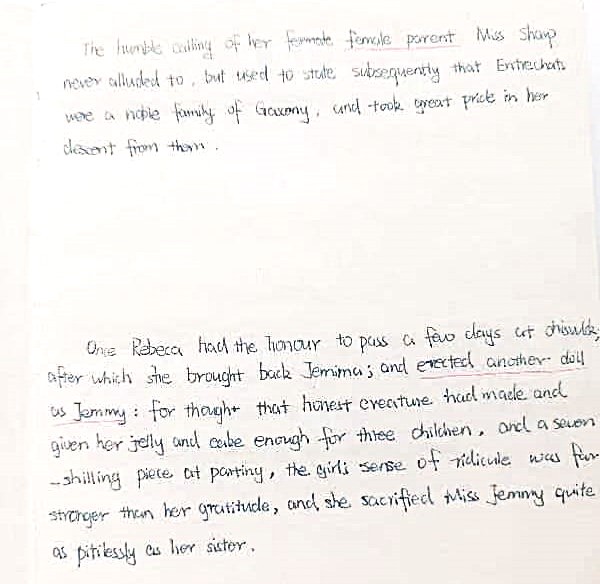 The humble calling of her femate female parent Miss Sharp
never alluded to, but used to state subsequently that Entrechats
were a noble family of Gascony, and took great pride in her
descent from them.
Once Rebeca had the honour to pass a few days at chiswick;
after which she brought back Jemima; and erected another doll
as Jemmy: for thought that honest creature had made and
given her jelly and cake enough for three children, and a seven
-shilling piece at parting, the girl's sense of ridicule was far
stronger than her gratitude, and she sacrificed Miss Jemmy quite
as pitilessly as her sister.